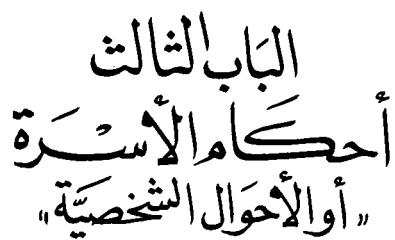 البَاب الثالث
أحكَام الأسْرَة
« أو الأحوَال الشخصيَّة »